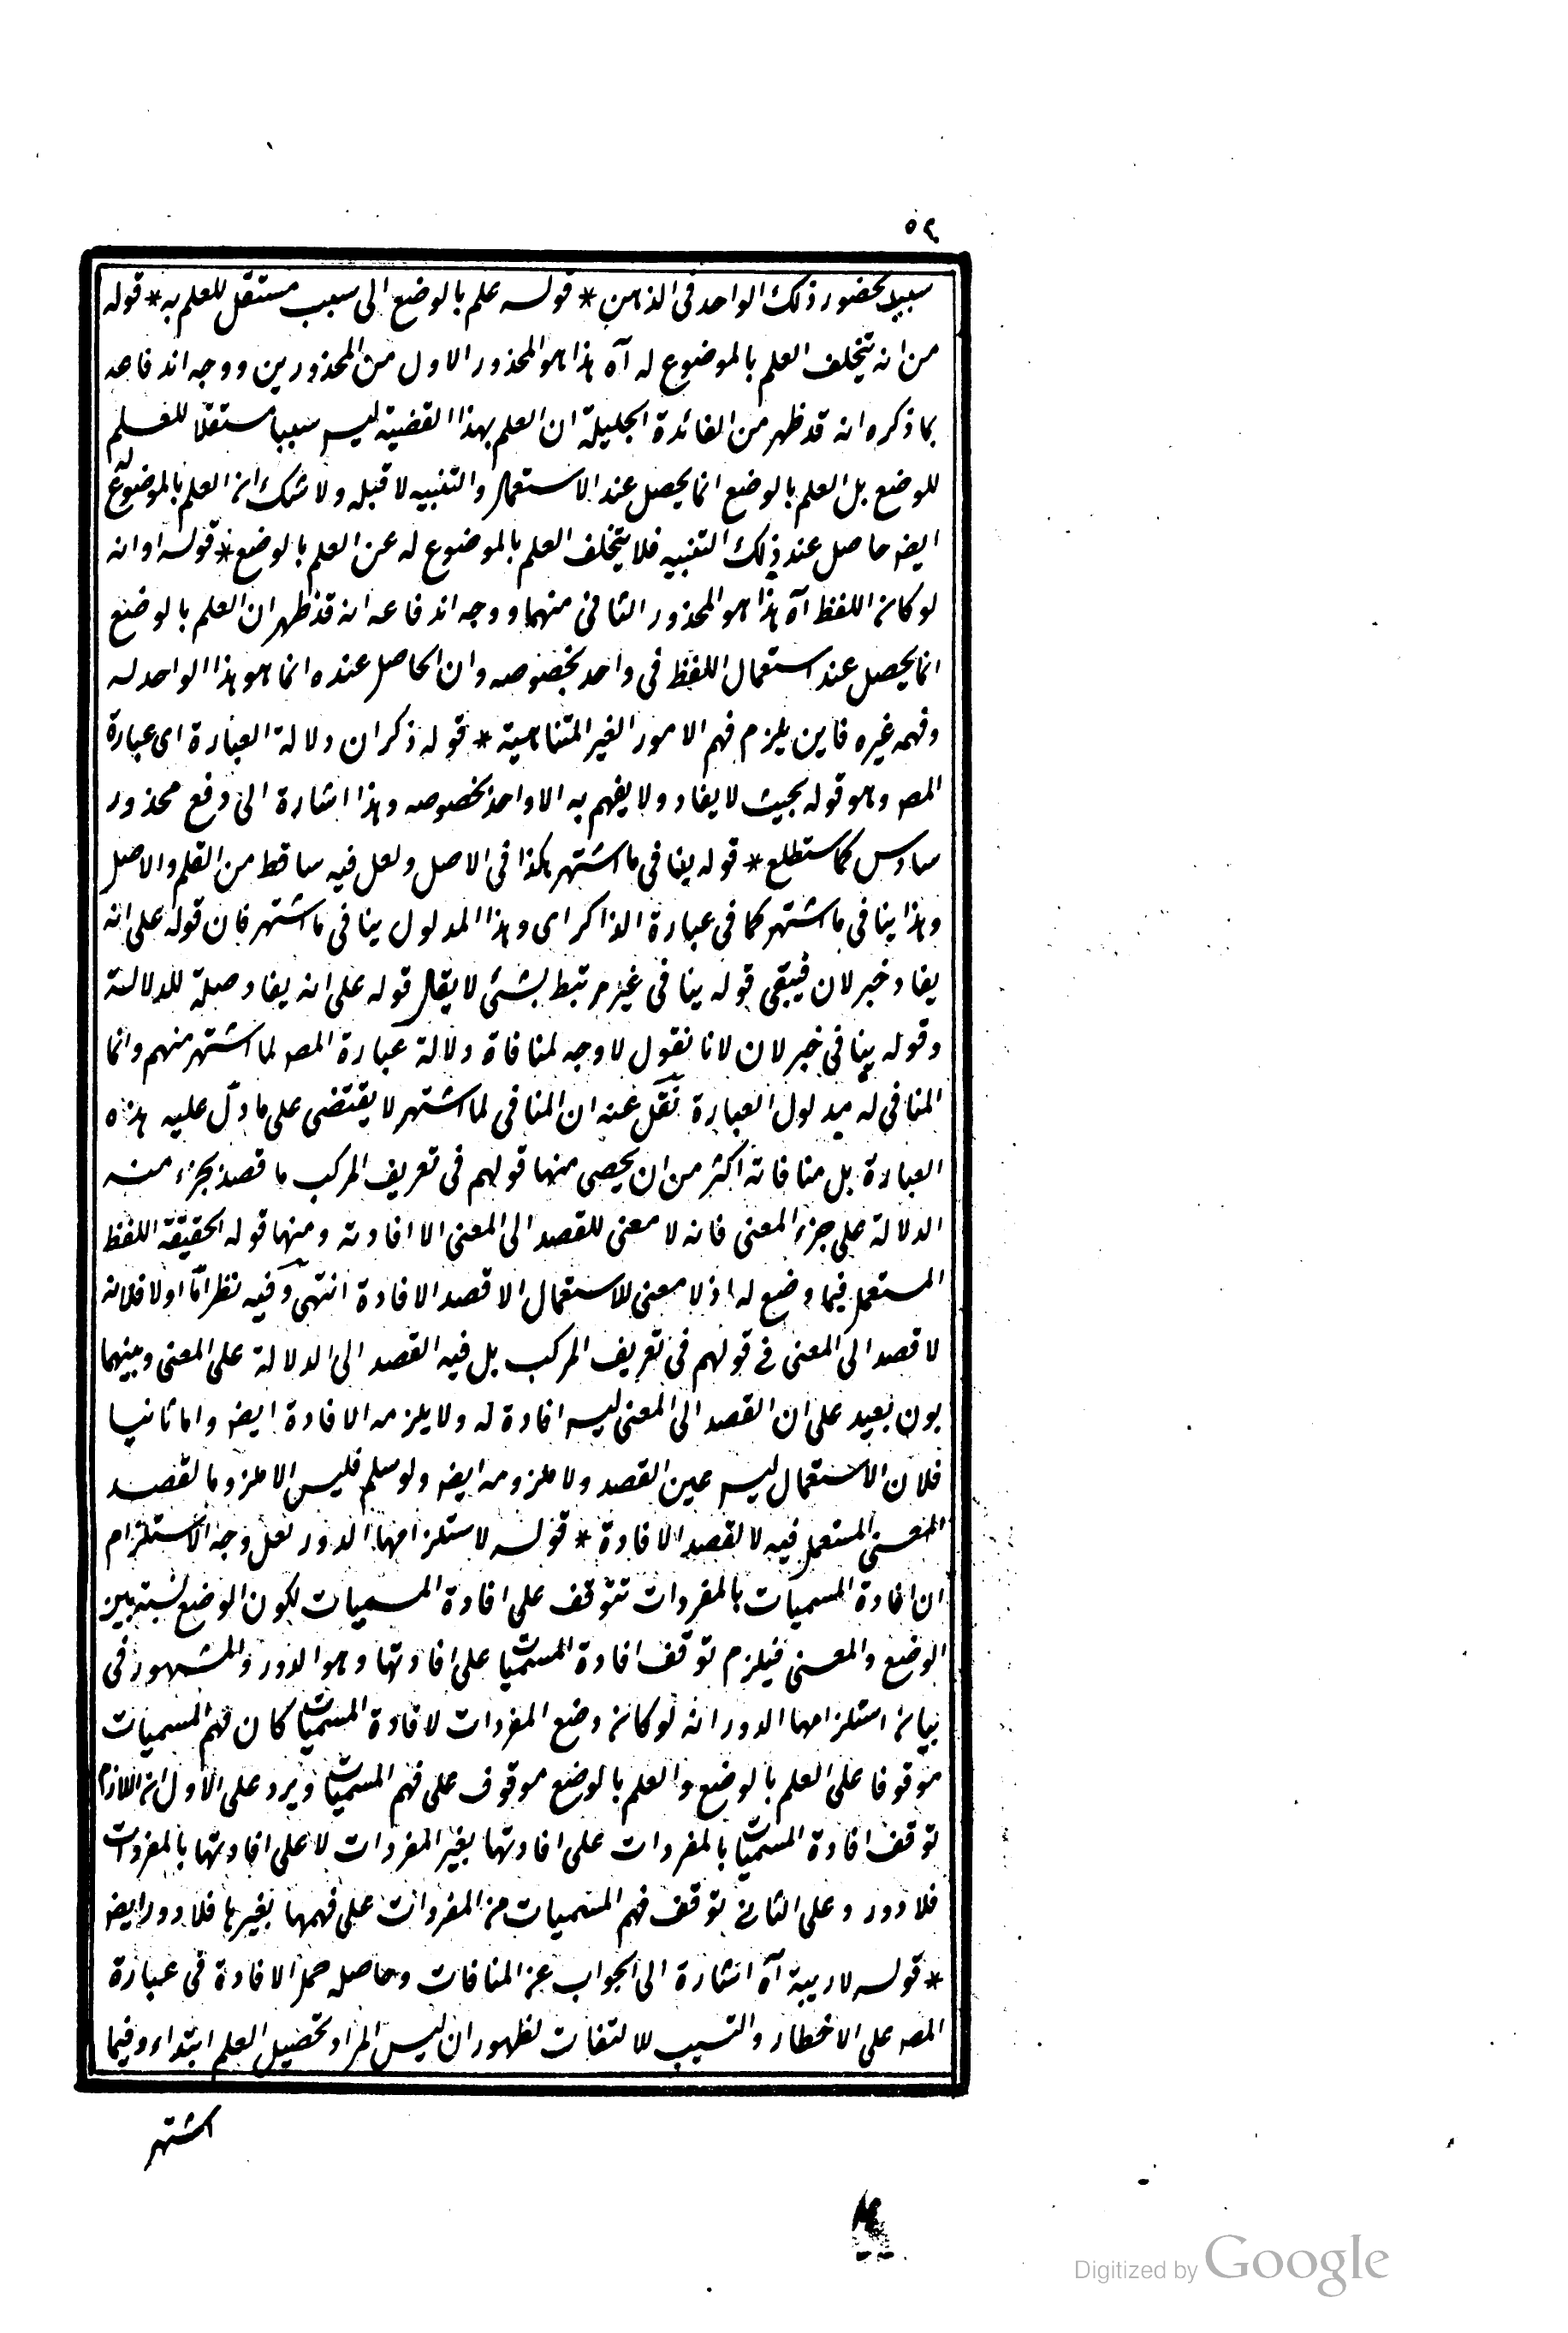 ٥٢
سببا لحضور ذلك الواحد فى الذهن * قوله علم بالوضع الى سبب مستقل للعلم به * قوله
من انه يتخلف العلم بالموضوع له آه هذا هو المحذور الاول من المحذورين ووجه اندفاعه
بما ذكره انه قد ظهر من الفائدة الجليلة ان العلم بهذا القضية ليس سببا مستقلا للعلم
للوضع بل العلم بالوضع انما يحصل عند الاستعمال والتنبيه لا قبله ولا شك ان العلم بالموضوع له
ايضا حاصل عند ذلك التنبيه فلا يتخلف العلم بالموضوع له عن العلم بالوضع * قوله او انه
لو كان اللفظ آه هذا هو المحذور الثانى منهما ووجه اندفاعه انه قد ظهر ان العلم بالوضع
انما يحصل عند استعمال اللفظ فى واحد بخصوصه وان الحاصل عنده انما هو هذا الواحد له
وفهمه غيره فاين يلزم فهم الامور الغير المتناهية * قوله ذكر ان دلالة العبارة اى عبارة
المصـ وهو قوله بحيث لا يفاد ولا يفهم به الا واحد بخصوصه وهذا اشارة الى دفع محذور
سادس كما ستطلع * قوله ينافى ما اشتهر هكذا فى الاصل ولعل فيه ساقط من القلم والاصل
وهذا ينافى ما اشتهر كما فى عبارة الذاكر اى وهذا المدلول ينافى ما اشتهر فان قوله على انه
يفاد خبر لان فيبقى قوله ينافى غير مرتبط بشئ لا يقال قوله على انه يفاد صلة للدلالة
وقوله ينافى خبر لان لانا نقول لا وجه لمنافاة دلالة عبارة المصـ لما اشتهر منهم وانما
المنافى له مدلول العبارة نقل عنه ان المنافى لما اشتهر لا يقتضى على ما دل عليه هذه
العبارة بل منافاته اكثر من ان يحصى منها قولهم فى تعريف المركب ما قصد بجزء منه
الدلالة على جزء المعنى فانه لا معنى للقصد الى المعنى الا افادته ومنها قوله الحقيقة اللفظ
المستعمل فيما وضع له اذ لا معنى للاستعمال الا قصد الافادة انتهى وفيه نظر اما اولا فلانه
لا قصد الى المعنى فى قولهم فى تعريف المركب بل فيه القصد الى الدلالة على المعنى وبينهما
بون بعيد على ان القصد الى المعنى ليس افادة له ولا يلزمه الافادة ايضا واما ثانيا
فلان الاستعمال ليس عين القصد ولا ملزومه ايضا ولو سلم فليس الا ملزوما لقصد
المعنى المستعمل فيه لا لقصد الافادة * قوله لاستلزامها الدور لعل وجه الاستلزام
ان افادة المسميات بالمفردات تتوقف على افادة المسميات لكون الوضع نسبة بين
الوضع والمعنى فيلزم توقف افادة المسميات على افادتها وهو الدور والمشهور فى
بيان استلزامها الدور انه لو كان وضع المفردات لافادة المسميات كان فهم المسميات
موقوفا على العلم بالوضع والعلم بالوضع موقوف على فهم المسميات ويرد على الاول ان اللازم
توقف افادة المسميات بالمفردات على افادتها بغير المفردات لا على افادتها بالمفردات
فلا دور وعلى الثانى توقف فهم المسميات من المفردات على فهمها بغيرها فلا دور ايضا
* قوله لا ريبة آه اشارة الى الجواب عن المنافات وحاصله حمل الافادة فى عبارة
المصـ على الاخطار والتسبب للالتفات لظهور ان ليس المراد تحصيل العلم ابتداء وفيما
اشتهر
Digitized by Google